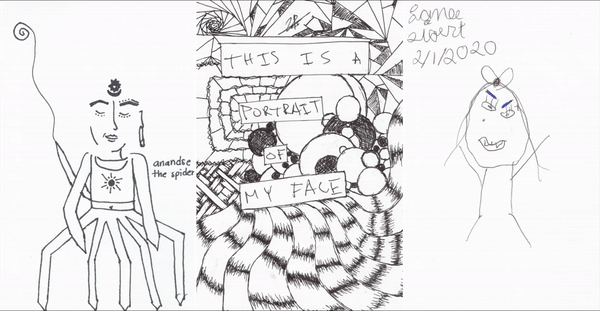 anandse
the spider
THIS IS A
PORTRAIT
OF
MY FACE
2/1/2020